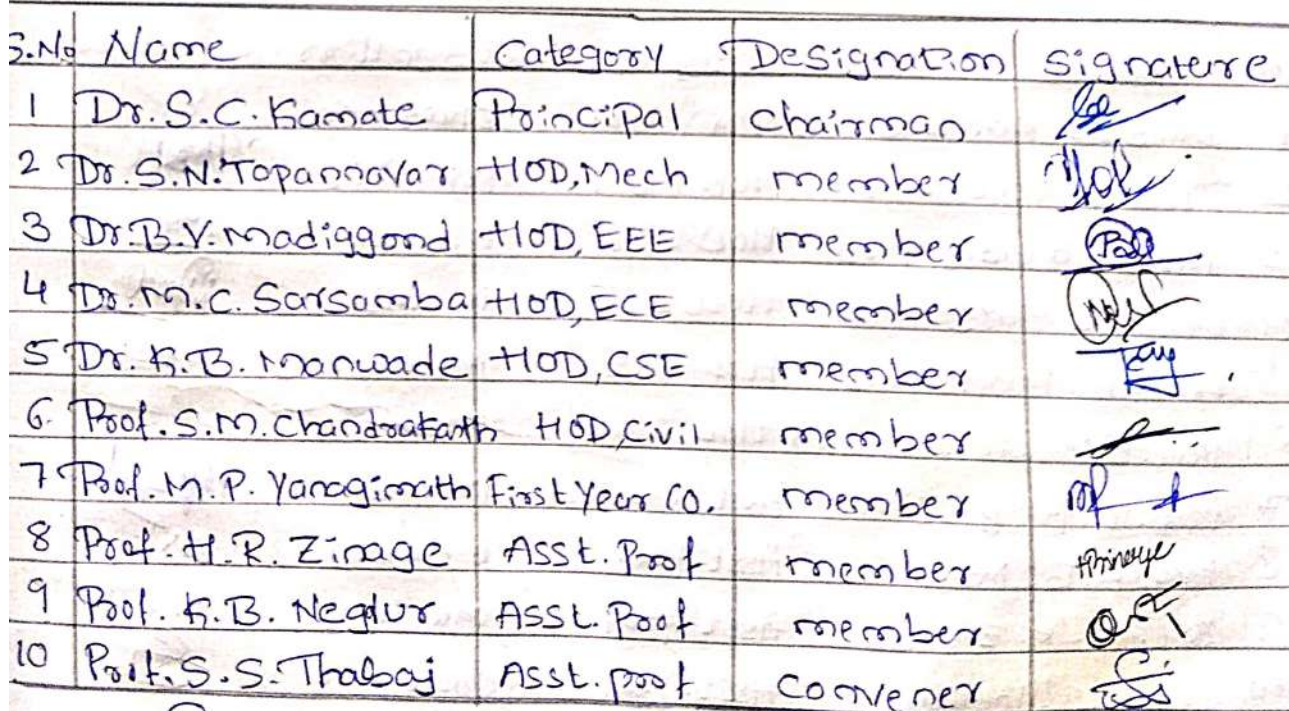 S.No Name Category Designation Signature
1 Dr. S.C. Kamate Principal Chairman
2 Dr. S.N. Topannavar HOD, Mech member
3 Dr. B.V. Madiggond HOD, EEE member
4 Dr. M.C. Sarsamba HOD, ECE member
5 Dr. K.B. Manwade HOD, CSE member
6. Prof. S.M. Chandrakanth HOD, Civil member
7 Prof. M.P. Yanagimath First Year CO. member
8 Prof. H.R. Zinage Asst. Prof member
9 Prof. K.B. Neglur Asst. Prof member
10 Prof. S.S. Thabaj Asst. prof convener